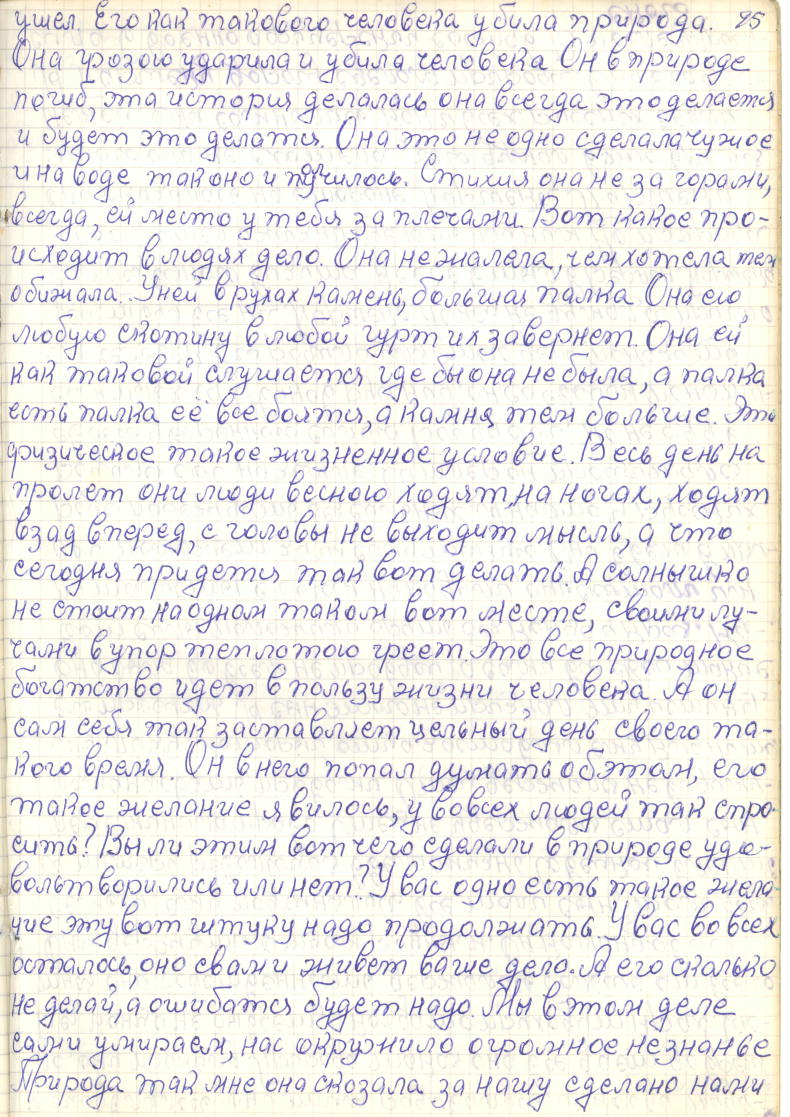 ушел. Его как такового человека убила природа. 95
Она грозою ударила и убила человека Он в природе
погиб, эта история делалась она всегда это делается
и будет это делатся. Она это не одно сделала чужое
и на воде так оно и получилось. Стихия она не за горами,
всегда, ей место у тебя за плечами. Вот какое про-
исходит в людях дело. Она не жалела, чем хотела тем
обижала. У ней в руках камень, большая палка Она ею
любую скотину в любой гурт их завернет. Она ей
как таковой слушается где бы она не была, а палка
есть палка её все боятся, а камня тем больше. Это
физическое такое жизненное условие. Весь день на
пролет они люди весною ходят, на ногах, ходят
взад вперед, с головы не выходит мысль, а что
сегодня придется так вот делать. А солнышко
не стоит на одном таком вот месте, своими лу-
чами в упор теплотою греет. Это все природное
богатство идет в пользу жизни человека. А он
сам себя так заставляет цельный день своего та-
кого время. Он в него попал думать об этом, его
такое желание явилось, у вовсех людей так спро-
сить? Вы ли этим вот чего сделали в природе удо-
вольтворились или нет? У вас одно есть такое жела-
ние эту вот штуку надо продолжать. У вас во всех
осталось, оно свами живет ваше дело. А его сколько
не делай, а ошибатся будет надо. Мы в этом деле
сами умираем, нас окружило огромное незнанье
Природа так мне она сказала за нашу сделано нами